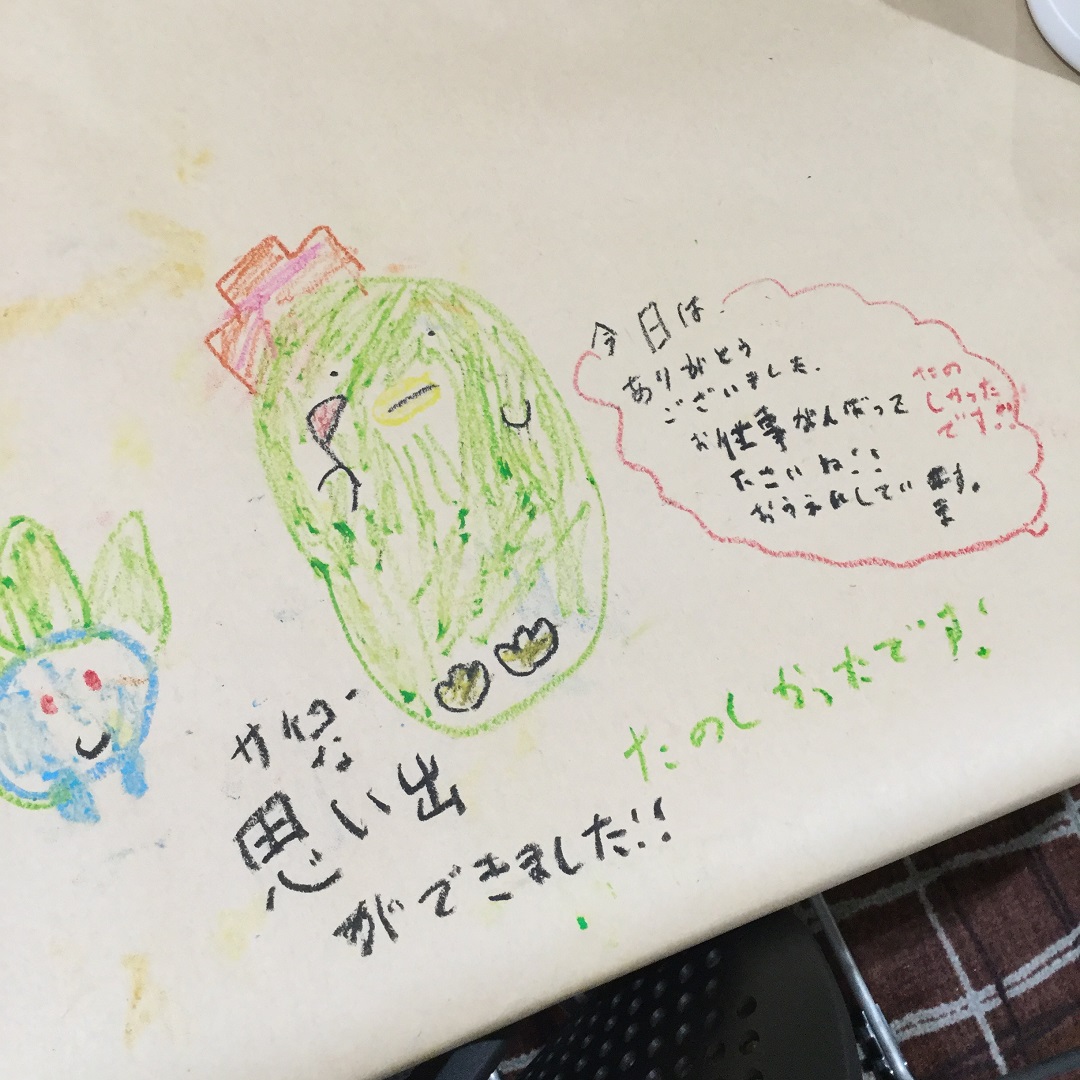 今日は、
ありがとう
ございました。
お仕事がんばって
ださいね!!
おうえんしています。
たの
しかった
です!!
たのしかったです!
サイコーな
思い出
ができました!!